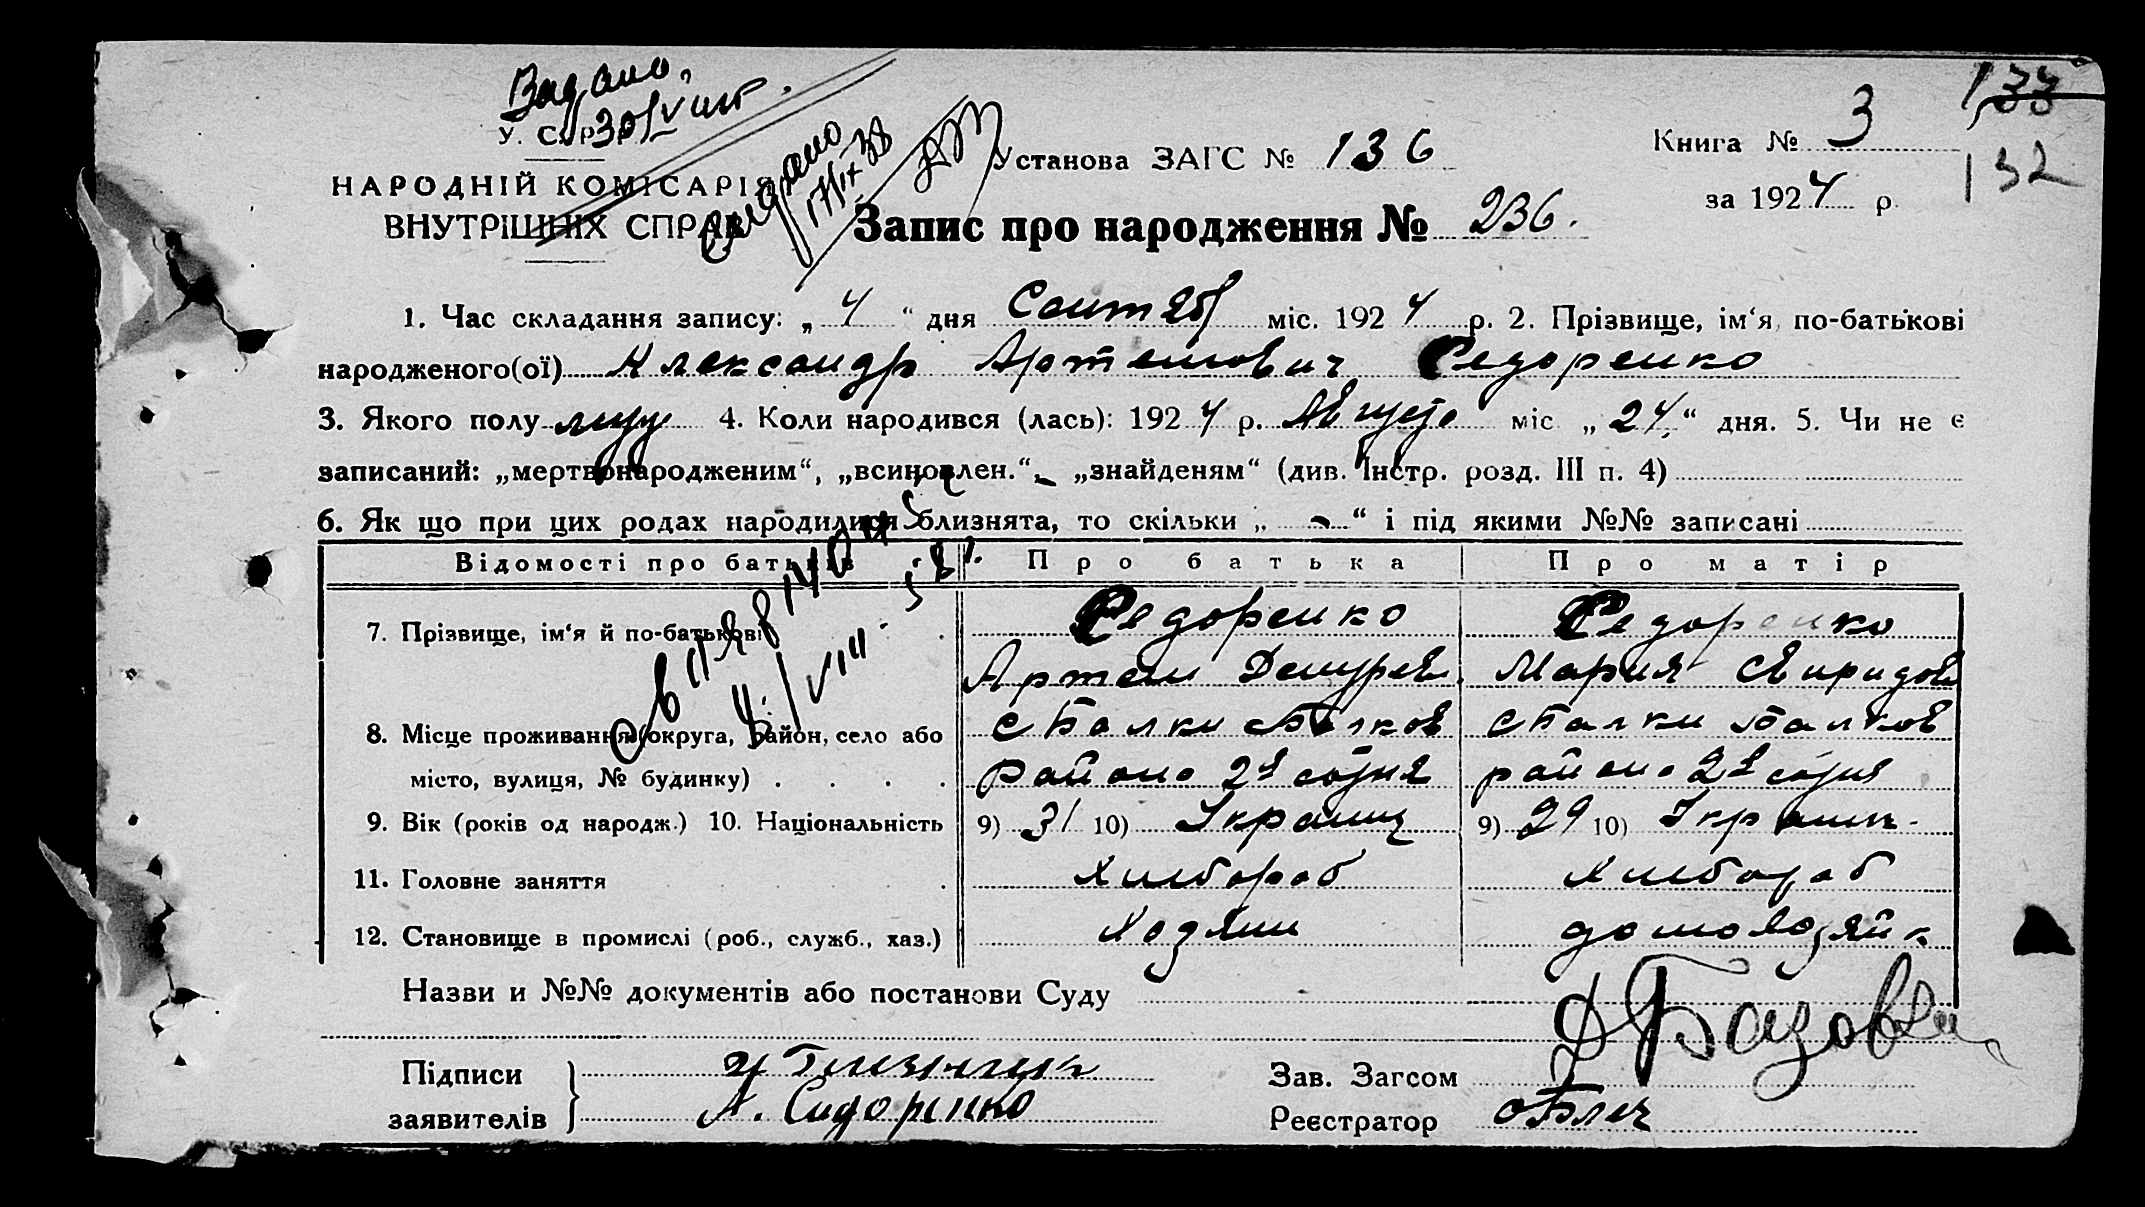 Видано
30/V
У. С. Р. Р.
НАРОДНІЙ КОМІСАРІЯТ
ВНУТРІШНІХ СПРАВ
Видано
17/IX 38
Установа ЗАГС № 136
Книга № 3
133
132
за 1924 р.
Запис про народження № 236.
1. Час складання запису: „ 4 “ дня Сентяб міс. 1924 р. 2. Прізвище, ім‘я, по-батькові
народженого(ої) Александр Артемович Федоренко
3. Якого полу муж 4. Коли народився (лась): 1924 р. Августа міс. „ 24 “ дня. 5. Чи не є
записаний: „мертвонародженим“, „всиновлен.“ – „знайденям“ (див. Інстр. розд. III п. 4)
6. Як що при цих родах народилися близнята, то скільки „ - “ і під якими №№ записані
Відомості про батьків Про батька Про матір
7. Прізвище, ім‘я й по-батькові Федоренко Федоренко
Артем Мария Свиридов
8. Місце проживання (округа, район, село або с Балки Балков с Балки Балков
місто, вулиця, № будинку) район. 2я сотня район. 2я сотня
9. Вік (років од народж.) 10. Національність 9) 31 10) Украинц 9) 29 10) Украин.
11. Головне заняття Хлебороб Хлебороб
12. Становище в промислі (роб., служб., хаз.) Хозяин домохозяйк
Назви и №№ документів або постанови Суду
Підписи
заявителів А. Сидоренко
Зав. Загсом
Реєстратор